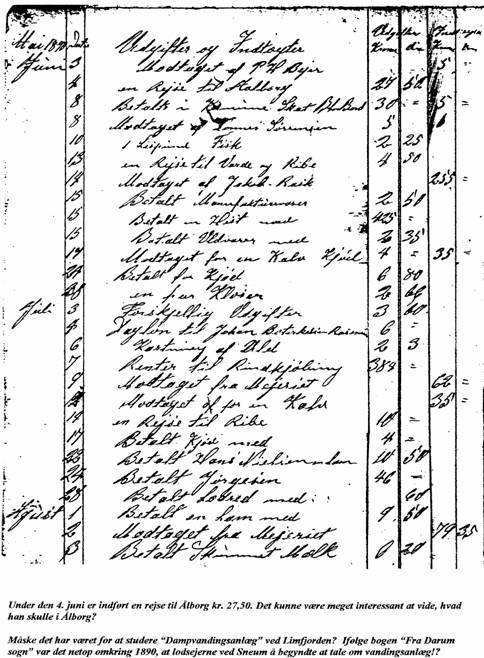 Udgifter Indtægter
Kroner Øre Kroner Øre
Mai 1890 Udgifter og Indtægter
Juni 3 Modtaget af P H 5
4 en Rejse til Aalborg 27 50
8 Betalt i Skat 30 = 5 =
8 Modtaget af Sørensen 5
10 1 Lispund Fisk 2 25
13 en Rejse til Varde og Ribe 4 50
14 Modtaget af Jakob 255 =
15 Betalt Manufakturvarer 2 50
15 Betalt en Hest med 425 =
15 Betalt med 2 35
17 Modtaget for en Kalv Kjød 4 = 35 =
24 Betalt for Kjød 6 80
28 en par 2 66
Juli 3 Forskjellig Udgifter 3 60
4 til Johan 6 =
6 af Uld 2 3
7 Renter til Ringkjøbing 388 =
9 Modtaget fra Mejeriet 62 =
Modtaget af for en Kalv 35 =
14 en Rejse til Ribe 10 =
17 Betalt Kjød med 4 =
23 Betalt Hans 10 50
24 Betalt Jørgesen 46 =
28 Betalt med 60
Agust 1 Betalt en med 9 50
2 Modtaget fra Mejeriet 79 35
3 Betalt Skummet Mælk 0 20
Under den 4. juni er indført en rejse til Ålborg kr. 27,50. Det kunne være meget interessant at vide, hvad
han skulle i Ålborg?
Måske det har været for at studere "Dampvandingsanlæg" ved Limfjorden? Ifølge bogen "Fra Darum
sogn" var det netop omkring 1890, at lodsejerne ved Sneum å begyndte at tale om vandingsanlæg!?